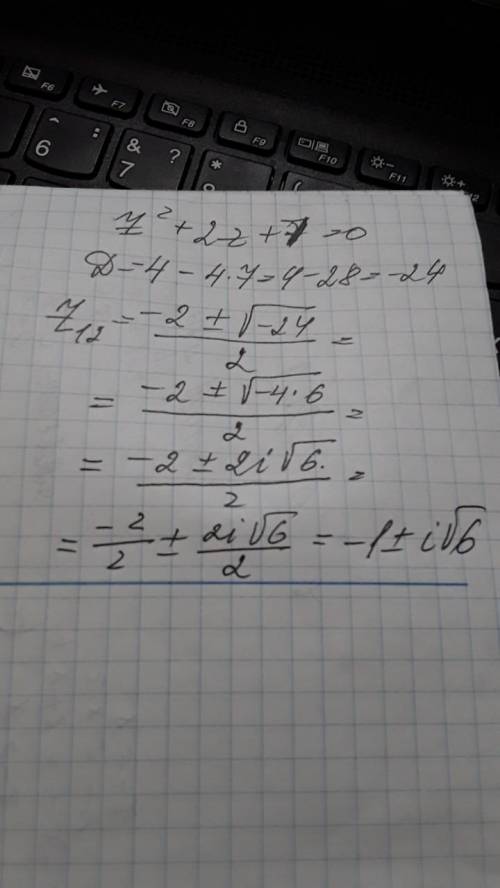 F6 F7 F8 F9 F10 F11 F12
^ : 6 & ? 7 *
z² + 2z + 7 = 0
D = 4 - 4·7 = 4 - 28 = -24
z₁₂ = (-2 ± √-24)/2 =
= (-2 ± √-4·6)/2 =
= (-2 ± 2i√6.)/2 =
= -2/2 ± 2i√6/2 = -1 ± i√6